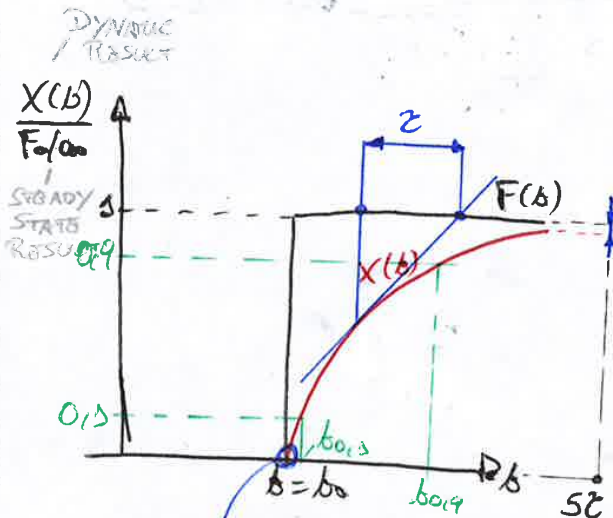 DYNAMIC
RESULT
X(t)
F₀/a₀
STEADY
STATE
RESULT
1
0,9
0,1
τ
F(t)
X(t)
t0,1
t = t₀
t0,9
t
5τ